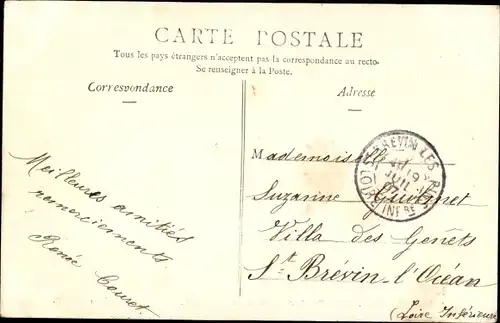 CARTE POSTALE
Tous les pays étrangers n'acceptent pas la correspondance au recto.
Se renseigner à la Poste.
Correspondance
Adresse
Meilleures amitiés
remerciements.
Renée
Mademoiselle
Suzanne
Villa des Genêts
St Brévin-l'Océan
(Loire Inférieure
BREVIN LES PINS
19
JUIL
LOIRE INFRE